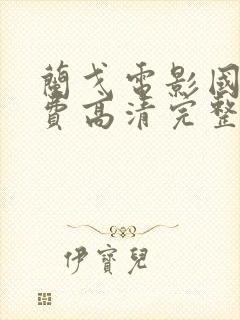 蘭戈電影國
費高清完整
伊寶兒